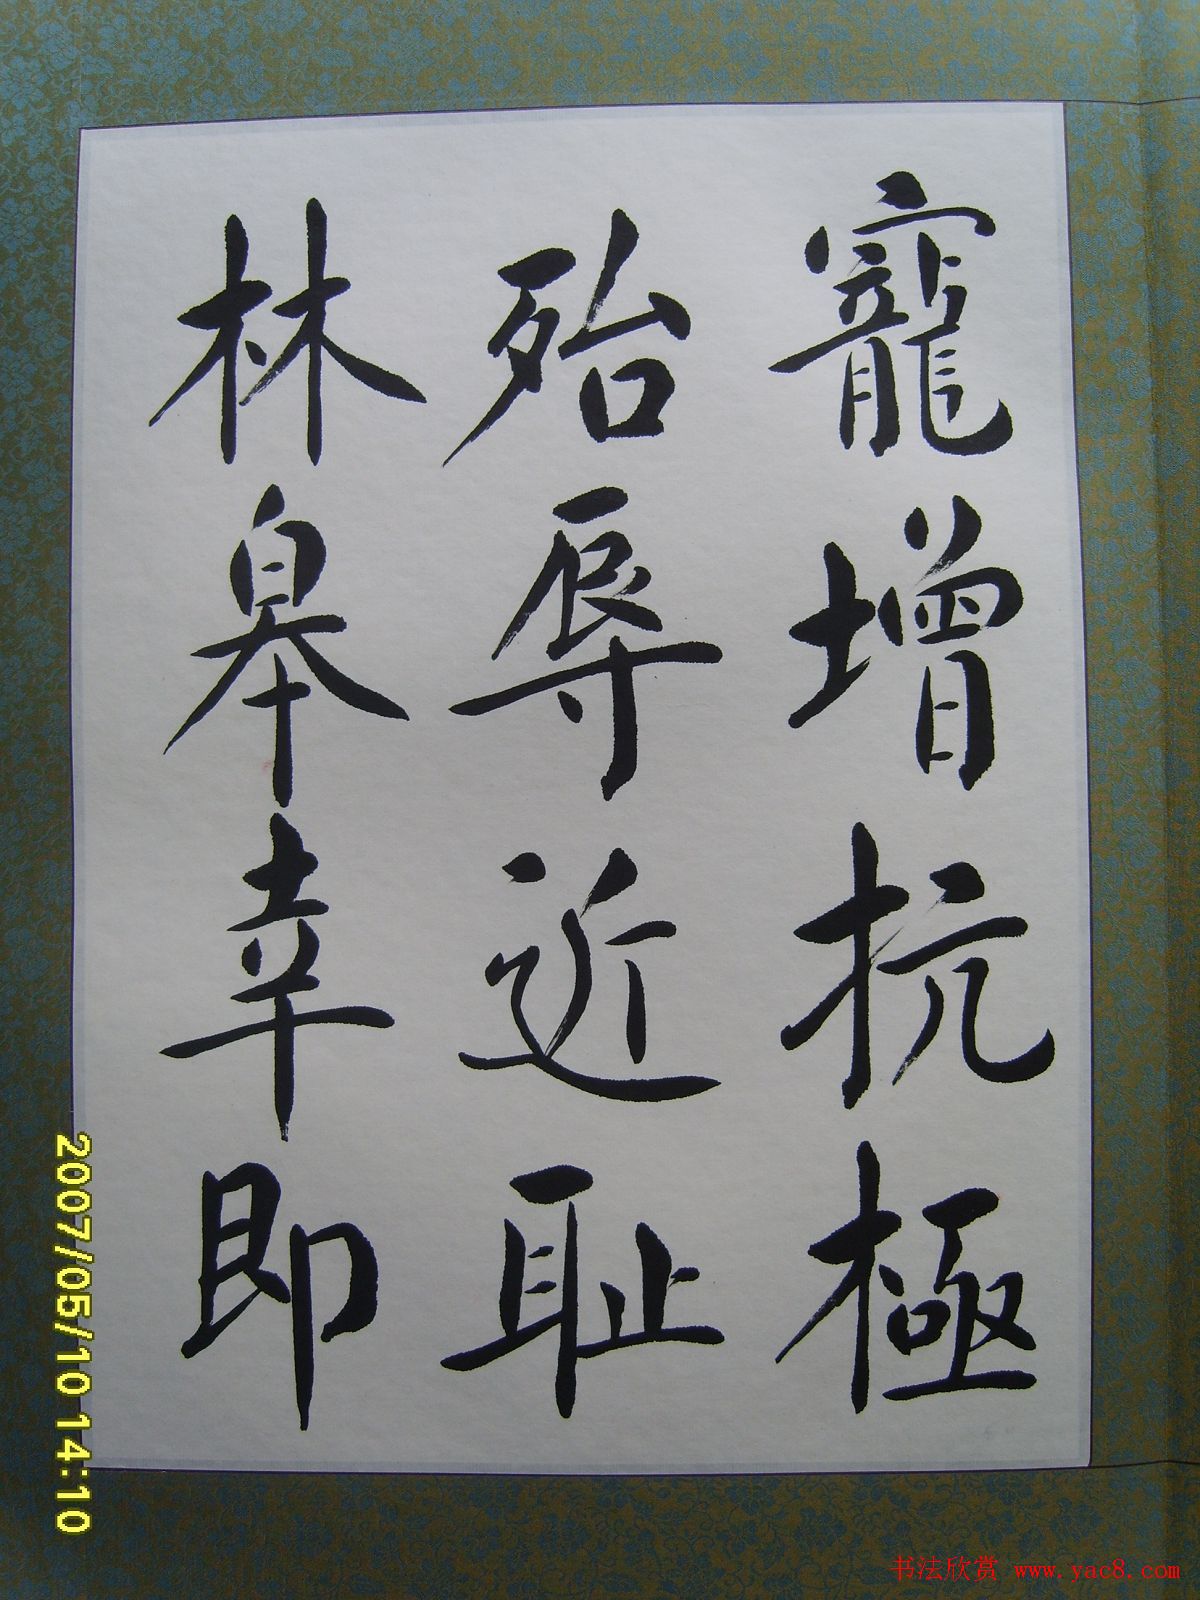 寵增抗極
殆辱近耻
林皋幸即
2007/05/10 14:10
书法欣赏 www.yac8.com